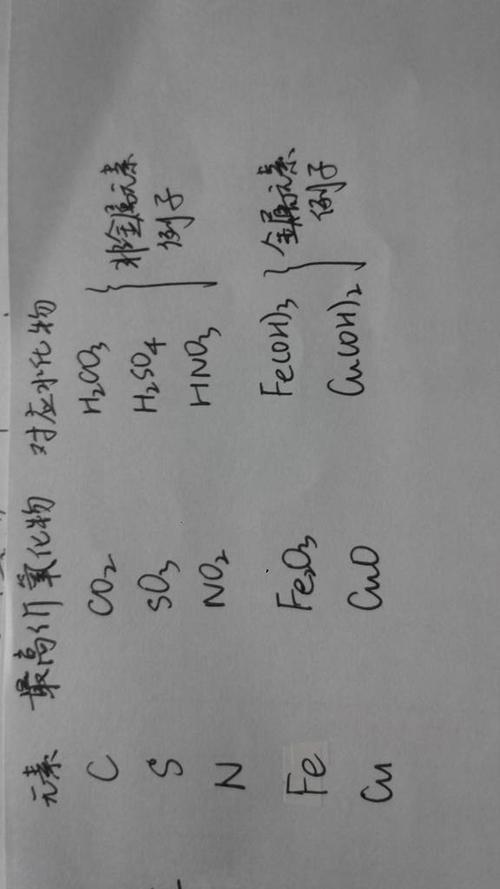 元素 最高价氧化物 对应水化物
C CO2 H2CO3
S SO3 H2SO4 } 非金属元素例子
N NO2 HNO3
Fe Fe2O3 Fe(OH)3 } 金属元素例子
Cu CuO Cu(OH)2